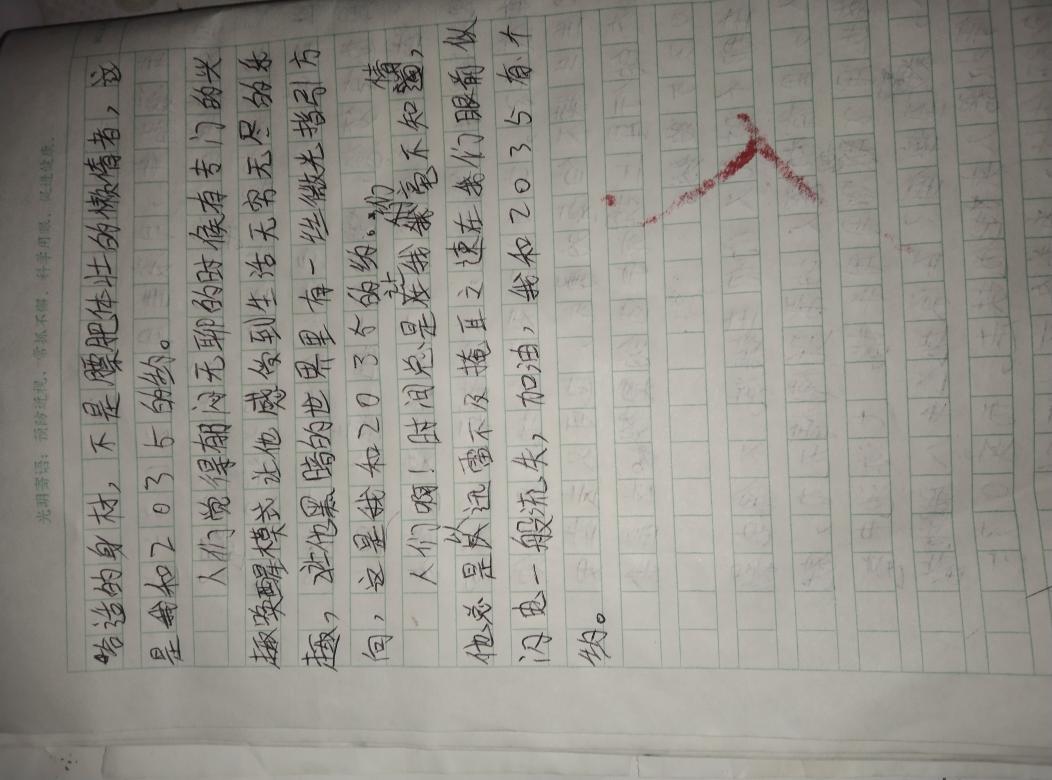 光明寄语：预防近视，常抓不懈，科学用眼，促进健康。
恰适的身材，不是膘肥体壮的懒惰者，这
是我和2035的约。
人们觉得郁闷无聊的时候有专门的兴
趣唤醒模式让他感受到生活无穷无尽的乐
趣，让他黑暗的世界里有一丝微光指引方
向，这是我和2035的约。
人们啊！时间总是让我们毫不知情，
他总是以迅雷不及掩耳之速在我们眼前似
闪电一般流失，加油，我和2035有个
约。